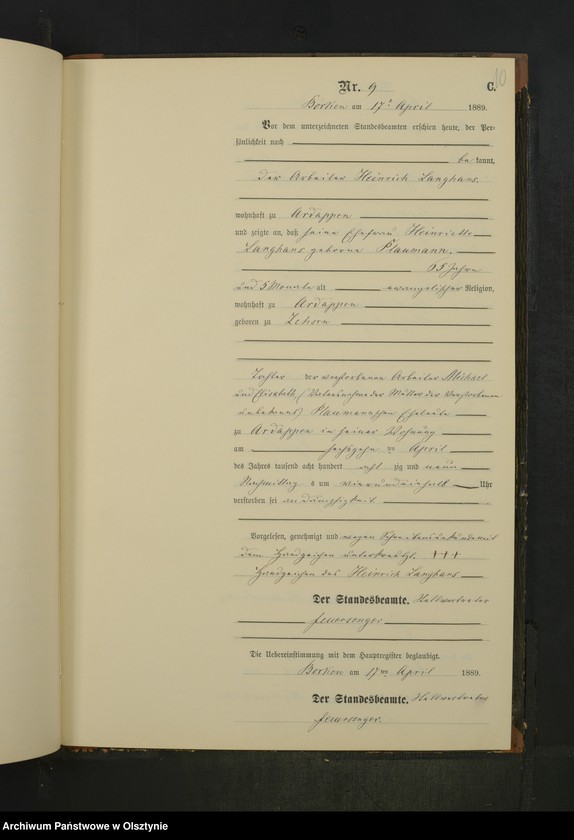 10
Nr. 9 C.
Borken am 17t April 1889.
Vor dem unterzeichneten Standesbeamten erschien heute, der Per-
sönlichkeit nach
be kannt,
der Arbeiter Heinrich Langhans.
wohnhaft zu Ardappen
und zeigte an, daß seine Ehefrau Heinriette
Langhans geborne Plaumann.
65 Jahre
und 5 Monate alt evangelischer Religion,
wohnhaft zu Ardappen
geboren zu
Tochter der verstorbenen Arbeiter Michael
und Elisabeth, (Vatersname der Mutter der Verstorbenen
unbekannt) Plaumannschen Eheleute
zu Ardappen in seiner Wohnung
am sechszehn ten April
des Jahres tausend acht hundert acht zig und neun
Nachmittag s um vierundeinhalb Uhr
verstorben sei an
Vorgelesen, genehmigt und wegen Schreibensunkunde mit
dem Handzeichen unterkreuzt. +++
Handzeichen des Heinrich Langhans
Der Standesbeamte. Stellvertreter
Feuersenger
Die Uebereinstimmung mit dem Hauptregister beglaubigt.
Borken am 17ten April 1889.
Der Standesbeamte. Stellvertreter
Feuersenger.
Archiwum Państwowe w Olsztynie